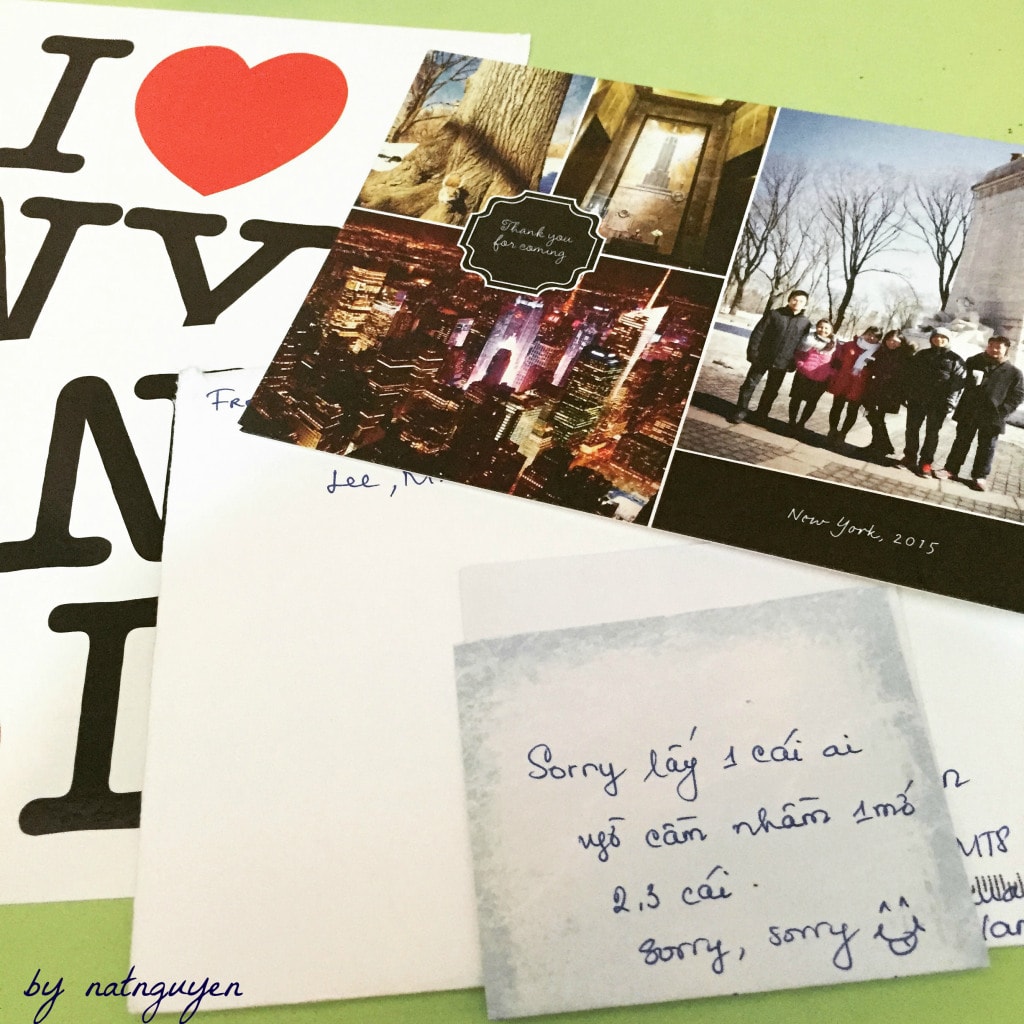 I
NY
N
I
Thank you
for coming
New York, 2015
Lee, M
Sorry lấy 1 cái ai
ngờ cầm nhầm 1 mớ
2,3 cái.
Sorry, sorry
MTS
by natnguyen